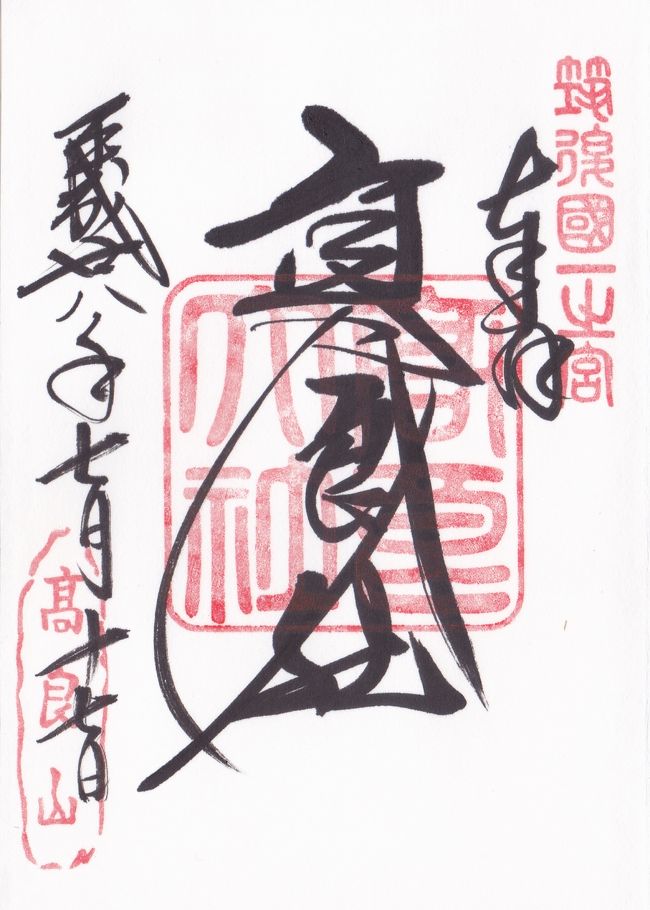 筑後國一之宮
奉拝
高良大社
高良大社
平成廿八年七月十七日
髙良山